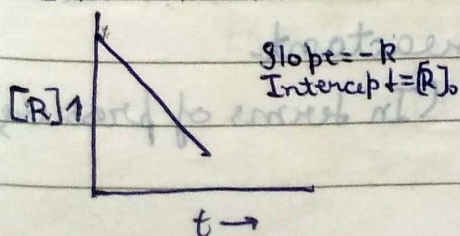 Slope = -k
Intercept = [R]₀
[R]↑
t →